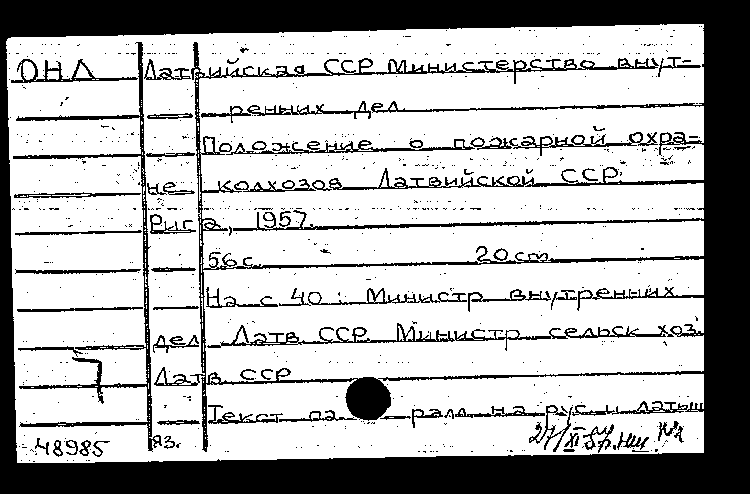 ОНЛ Латвийская ССР Министерство внут-
ренних дел
Положение о пожарной охра-
не колхозов Латвийской ССР.
Рига, 1957.
56 с. 20 cm
На с 40 : Министр внутренних
дел Латв. ССР. Министр сельск хоз.
Латв. ССР
Текст па ралл на рус и латыш
48985 яз.